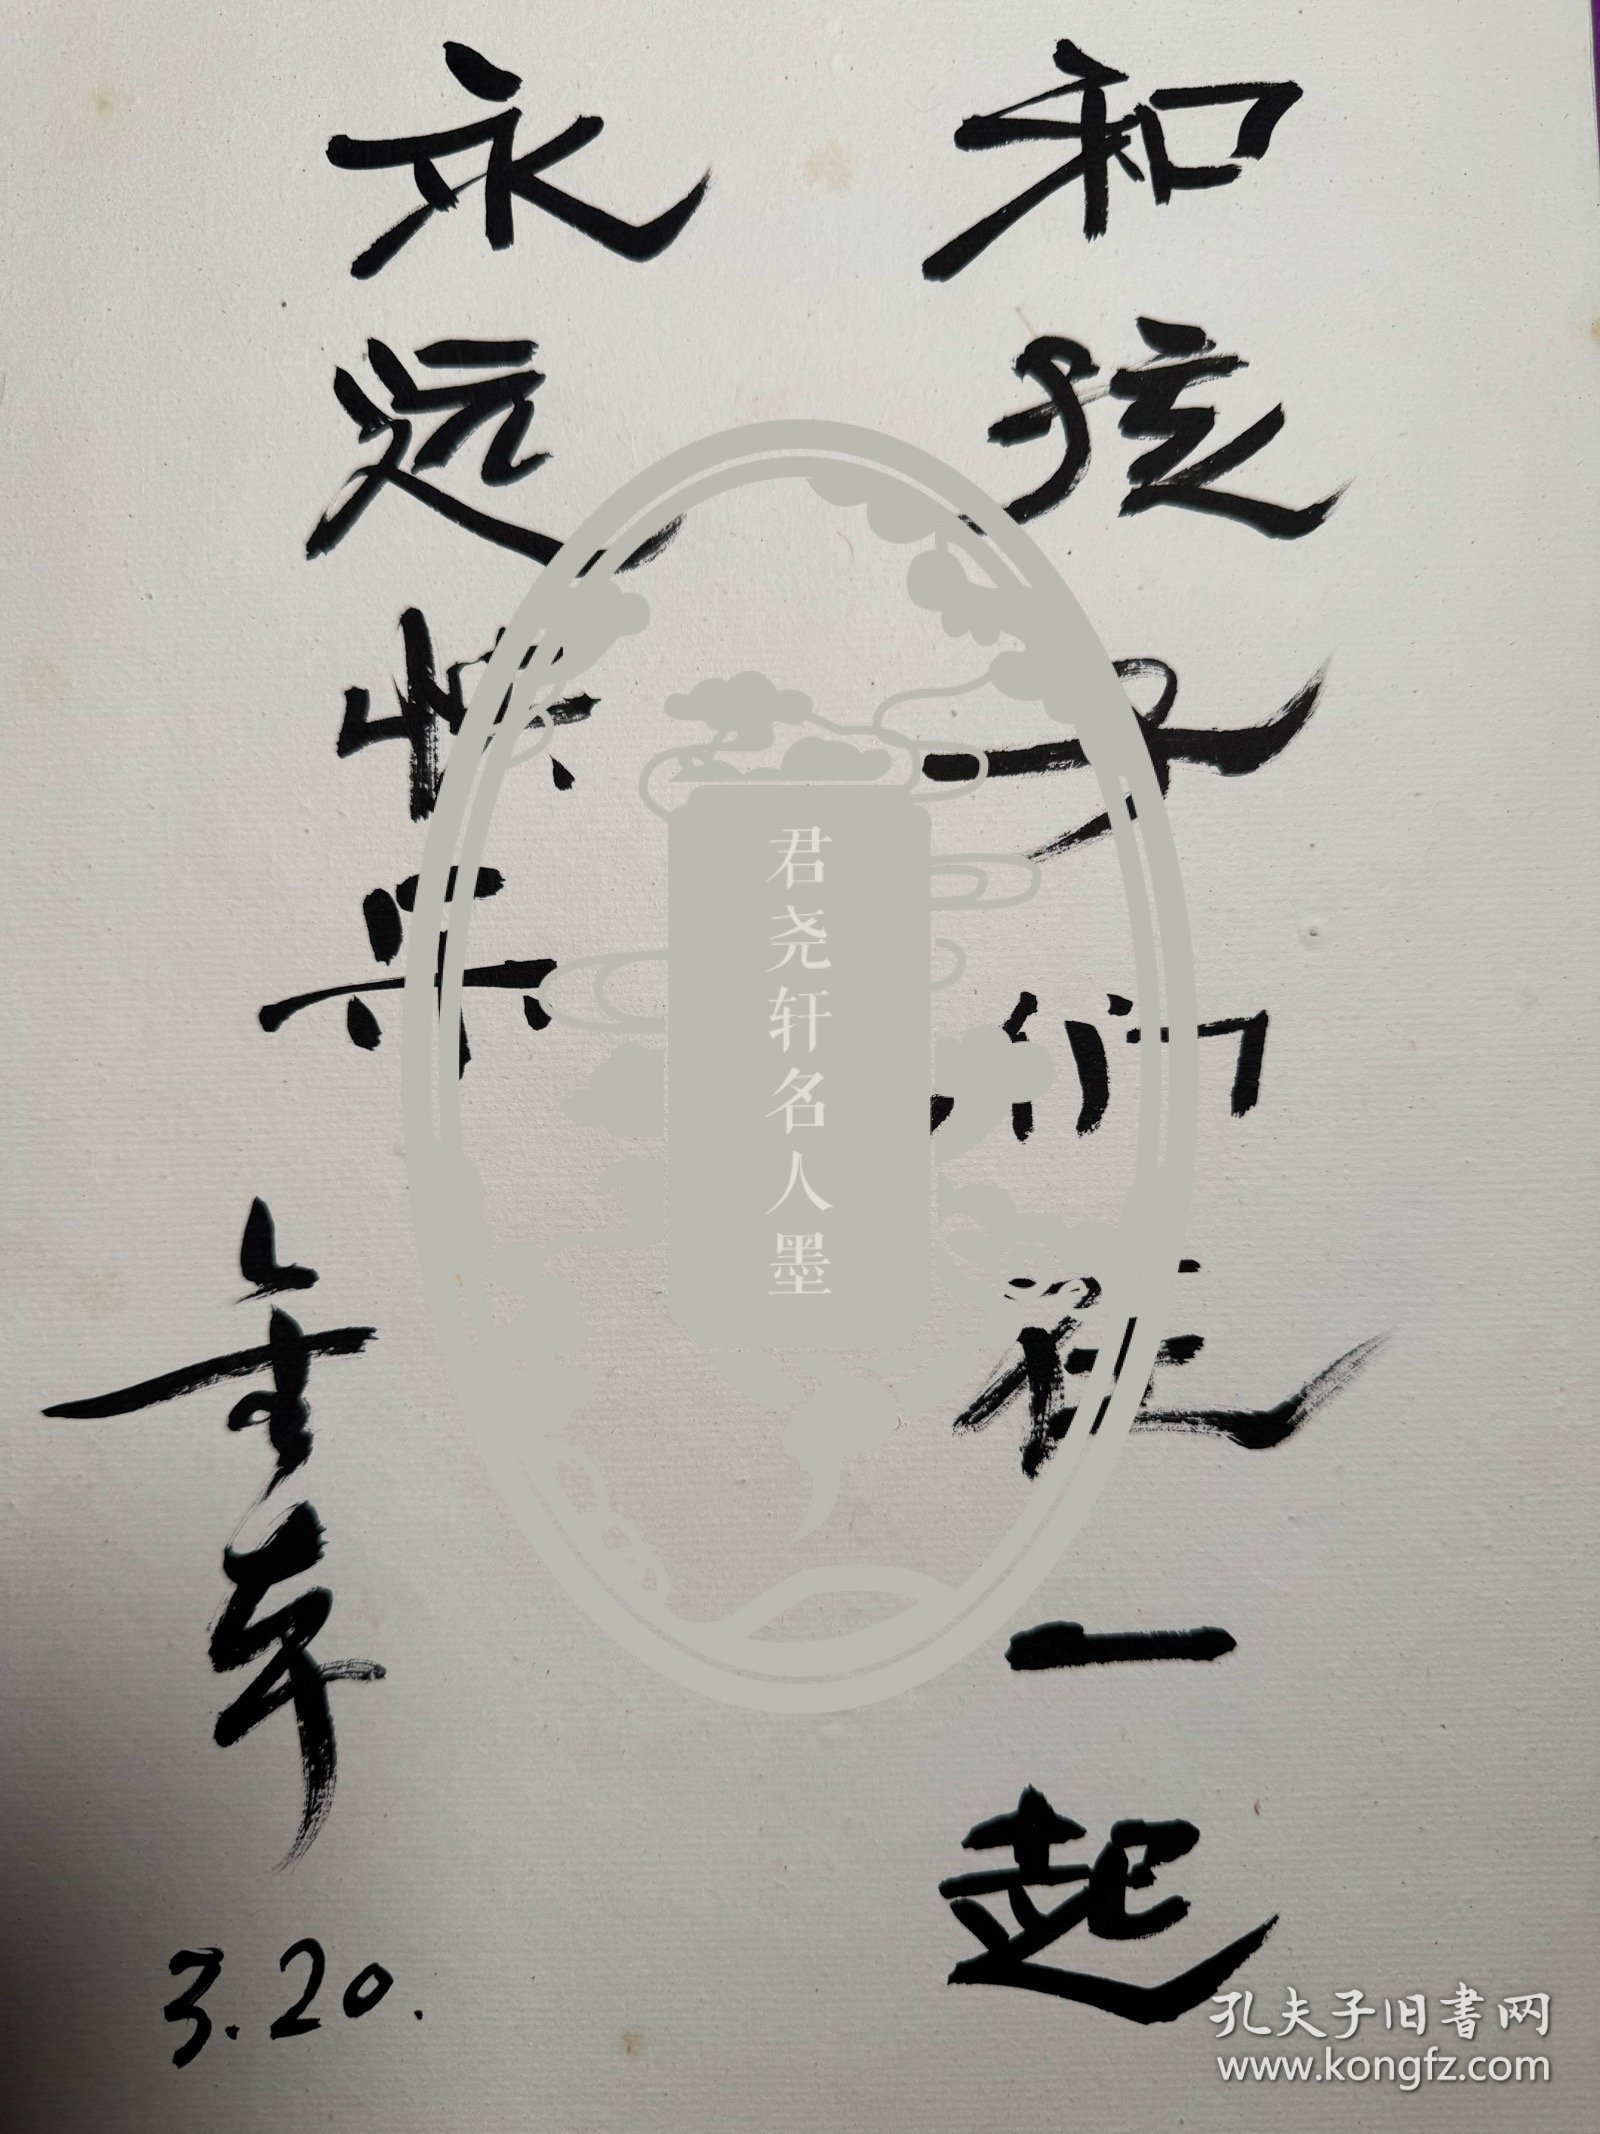 和孩子们在一起
永远快乐
3.20.
君尧轩名人墨
孔夫子旧书网
www.kongfz.com